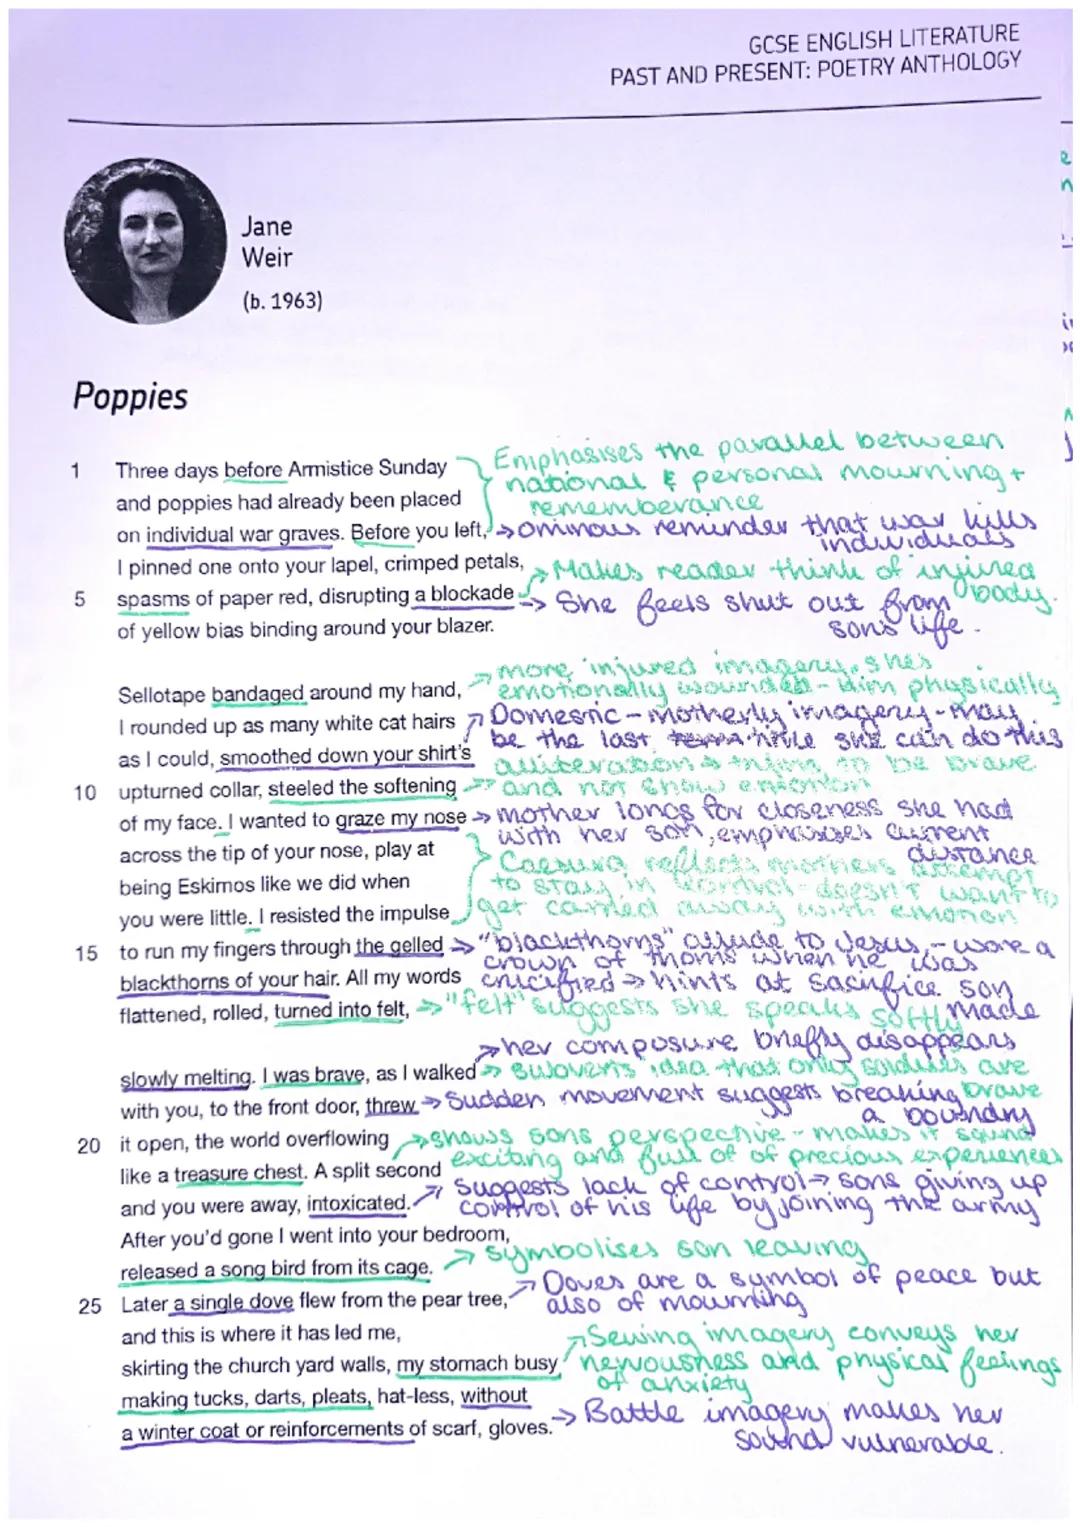 GCSE ENGLISH LITERATURE
PAST AND PRESENT: POETRY ANTHOLOGY
Jane
Weir
(b. 1963)
Poppies
1 Three days before Armistice Sunday
and poppies had already been placed
on individual war graves. Before you left,
I pinned one onto your lapel, crimped petals,
5 spasms of paper red, disrupting a blockade
of yellow bias binding around your blazer.
Emphasises the parallel between
national & personal mourning +
rememberance
→ Ominous reminder that war kills
individuals
→ Makes reader think of injured
body.
→ She feels shut out from
sons life.
Sellotape bandaged around my hand,
I rounded up as many white cat hairs
as I could, smoothed down your shirt's
10 upturned collar, steeled the softening
of my face. I wanted to graze my nose
across the tip of your nose, play at
being Eskimos like we did when
you were little. I resisted the impulse
15 to run my fingers through the gelled
blackthorns of your hair. All my words
flattened, rolled, turned into felt,
→ more injured imagery, shes
emotionally wounded - him physically
→ Domestic - motherly imagery - may
be the last time she can do this
alliteration → trying to be brave
→ and not show emotion
→ mother longs for closeness she had
with her son, emphasises current
distance
Caesura reflects mothers attempt
to stay in control - doesn't want to
get carried away with emotion
→ "blackthorns" allude to Jesus - wore a
crown of thorns when he was
crucified → hints at sacrifice son
made
→ "felt" suggests she speaks softly
slowly melting. I was brave, as I walked
with you, to the front door, threw
20 it open, the world overflowing
like a treasure chest. A split second
and you were away, intoxicated.
After you'd gone I went into your bedroom,
released a song bird from its cage.
25 Later a single dove flew from the pear tree,
and this is where it has led me,
skirting the church yard walls, my stomach busy
making tucks, darts, pleats, hat-less, without
a winter coat or reinforcements of scarf, gloves.
→ her composure briefly disappears
→ Subverts idea that only soldiers are
brave
→ Sudden movement suggests breaking
a boundry
→ shows sons perspective - makes it sound
exciting and full of of precious experiences
→ Suggests lack of control → sons giving up
control of his life by joining the army
→ symbolises son leaving
→ Doves are a symbol of peace but
also of mourning
→ Sewing imagery conveys her
nervousness and physical feelings
of anxiety
→ Battle imagery makes her
sound vulnerable.